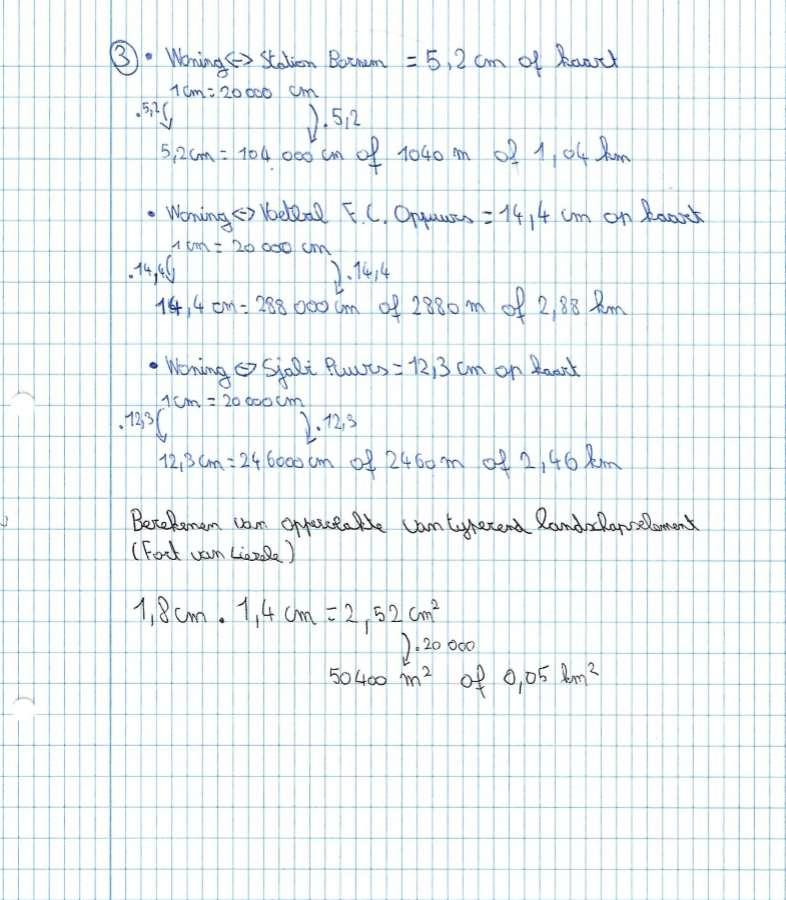 ③ • Woning <-> Station Bornem = 5,2 cm of kaart
1 cm = 20 000 cm
.5,2 ( ) .5,2
5,2cm = 104 000 cm of 1040 m of 1,04 km
• Woning <-> Voetbal F.C. Oppuurs = 14,4 cm op kaart
1 cm = 20 000 cm
.14,4 ( ) .14,4
14,4 cm = 288 000 cm of 2880 m of 2,88 km
• Woning <-> Sjabi Puurs = 12,3 cm op kaart
1 cm = 20 000 cm
.12,3 ( ) .12,3
12,3 cm = 246000 cm of 2460 m of 2,46 km
Berekenen van oppervlakte van typerend landschapselement
(Fort van Liezele)
1,8 cm . 1,4 cm = 2,52 cm²
) .20 000
50400 m² of 0,05 km²